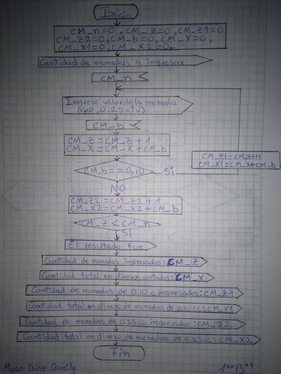 Inicio
CM_n=0, CM_Z=0, CM_Z1=0
CM_Z2=0, CM_b=0, CM_X=0,
CM_X1=0, CM_X2=0,
Cantidad de monedas a ingresar
CM_n
Ingrese valor de la moneda
CM_b
CM_Z = CM_Z + 1
CM_X = CM_X + CM_b
CM_b==0,10
Si
CM_Z1=CM_Z1+1
CM_X1=CM_X1+CM_b
NO
CM_Z2=CM_Z2+1
CM_X2=CM_X2+CM_b
CM_Z < CM_n
Si
El resultado fue
Cantidad de monedas ingresadas: CM_Z
Cantidad total en dinero : CM_X
Cantidad de monedas de 0.10 c ingresadas: CM_Z1
Cantidad total en dinero de monedas de 0.10 c: CM_X1
Cantidad de monedas de 0.25 c ingresadas: CM_Z2
Cantidad total en dinero de monedas de 0.25 c: CM_X2
Fin
Diaz